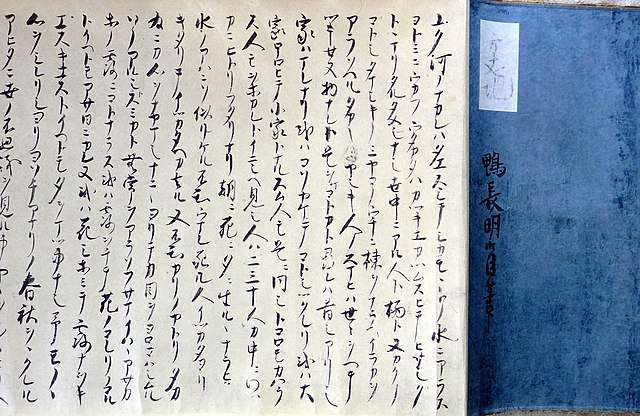 ユク河ノナカレハタエスシテシカモヽトノ水ニアラス
ヨトミニウカフウタカタハカツキエカツムスヒテヒサシク
トヽマリタルタメシナシ世中ニアル人ト栖ト又カクノ
コトシタマシキノミヤコノウチニ棟ヲナラヘイラカヲ
アラソヘルタカキイヤシキ人ノスマヒハ世々ヲヘテツキ
セヌ物ナレト是ヲマコトカト尋レハ昔シアリシ
家ハマレナリ或ハコソヤケテコトシツクレリ或ハ大
家ホロヒテ小家トナルスム人モ是ニ同シトコロモカハラ
ス人モヲホカレトイニシヘ見シ人ハ二三十人カ中ニワツ
カニヒトリフタリナリ朝ニ死ニ夕ニ生ルヽナラヒ
水ノアハニソ似リケル不知ウマレ死ル人イツカタヨリ
キタリテイツカタヘカ去ル又不知カリノヤトリタカ
為ニカ心ヲナヤマシナニヽヨリテカ目ヲヨロコハシムル
ソノアルシトスミカト無常ヲアラソフサマイハヽアサカ
ホノ露ニコトナラス或ハ露ヲチテ花ノコレリノコル
トイヘトモアサ日ニカレヌ或ハ花シホミテ露ナヲキ
エスキエストイヘトモ夕ヲマツ事ナシ予モノヽ
心ヲシレリシヨリヨソチアマリノ春秋ヲヽクレル
アヒタニ世ノ不思議ヲ見ル事
方丈記
鴨長明自筆